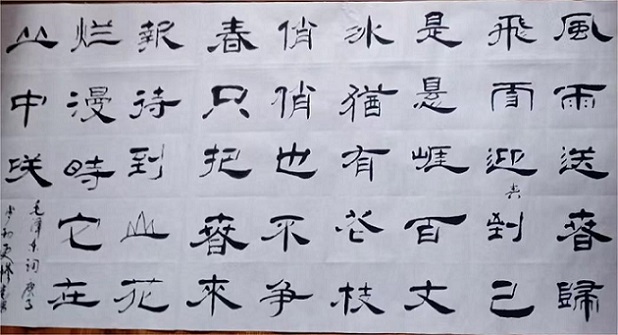 風雨送春歸
飛雪迎春到已
是悬崖百丈
冰猶有花枝
俏俏也不争
春只把春來
報待到山花
烂漫時它在
丛中咲
毛澤东詞庚子